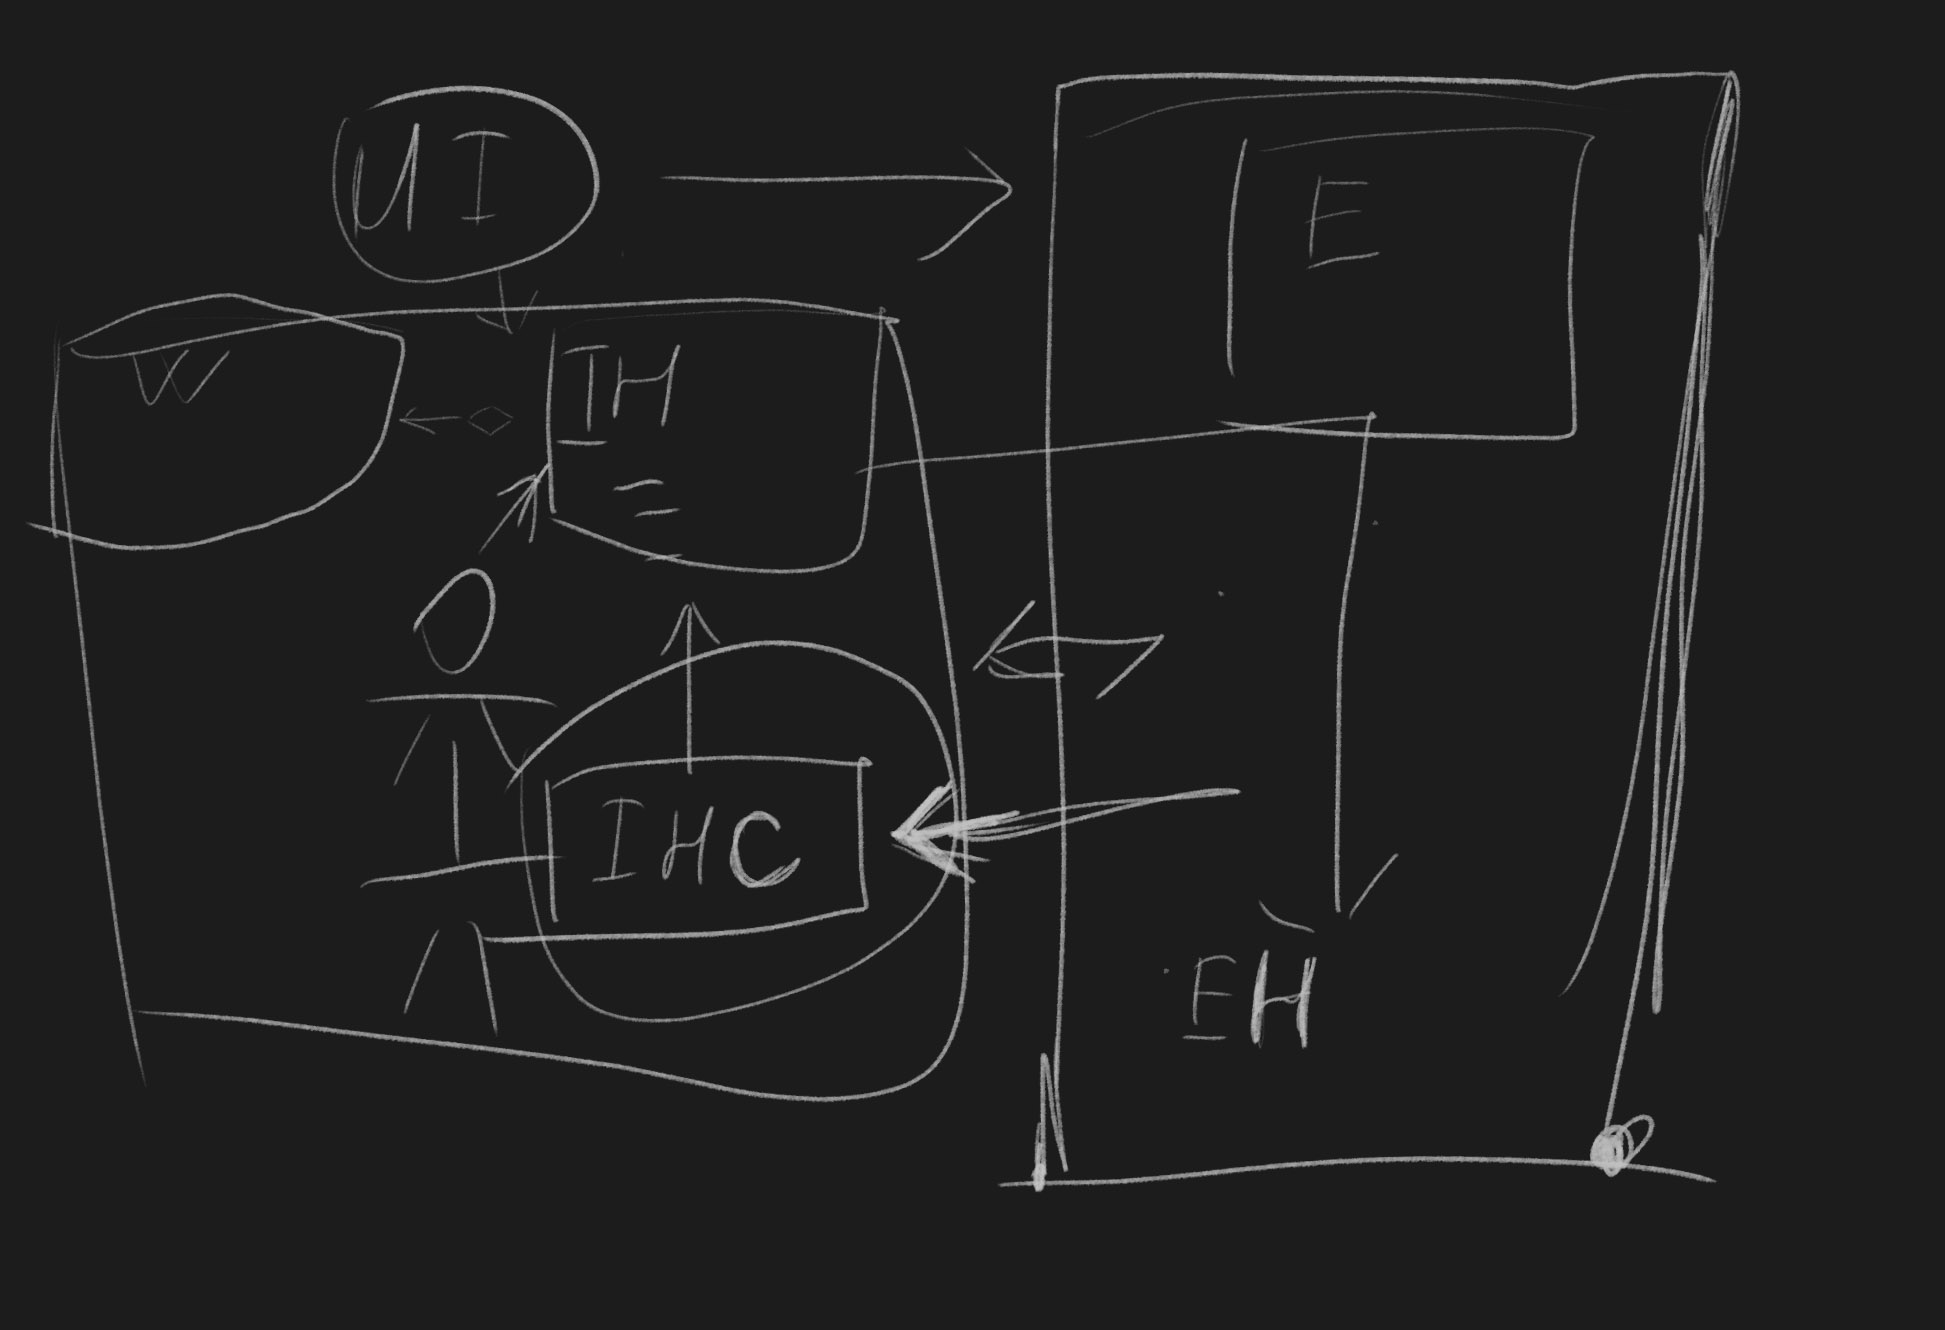 UI
E
W
IH
IHC
EH